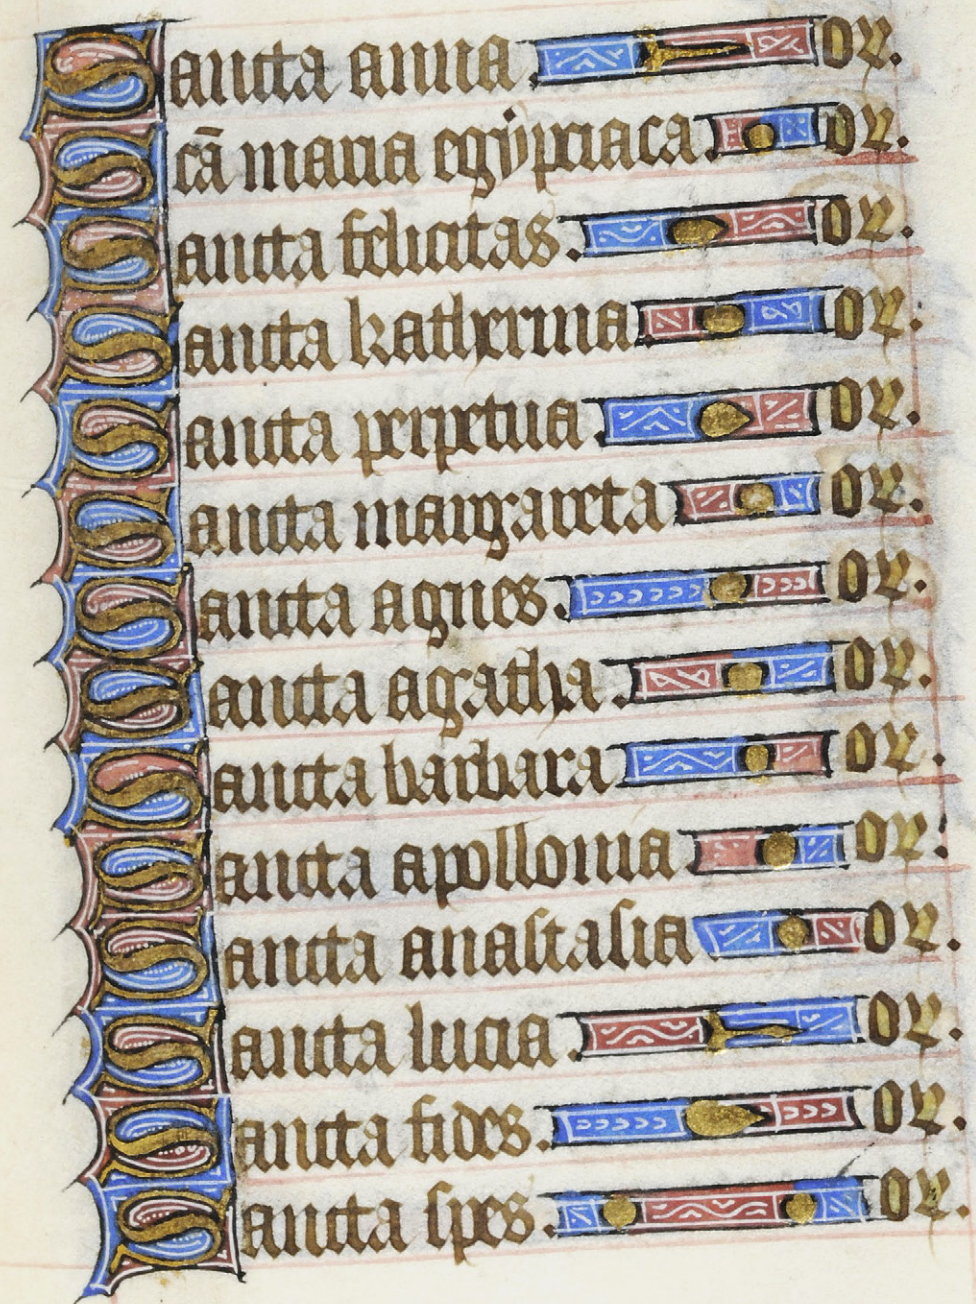 Sancta anna. or.
Scā maria egypciaca. or.
Sancta felicitas. or.
Sancta katherina. or.
Sancta perpetua. or.
Sancta margareta. or.
Sancta agnes. or.
Sancta agatha. or.
Sancta barbara. or.
Sancta apollonia. or.
Sancta anastasia. or.
Sancta lucia. or.
Sancta fides. or.
Sancta spes. or.